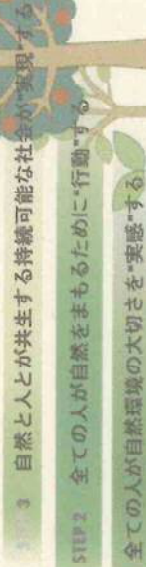 STEP 3 自然と人とが共生する持続可能な社会が"実現"する
STEP 2 全ての人が自然をまもるために"行動"する
全ての人が自然環境の大切さを"実感"する